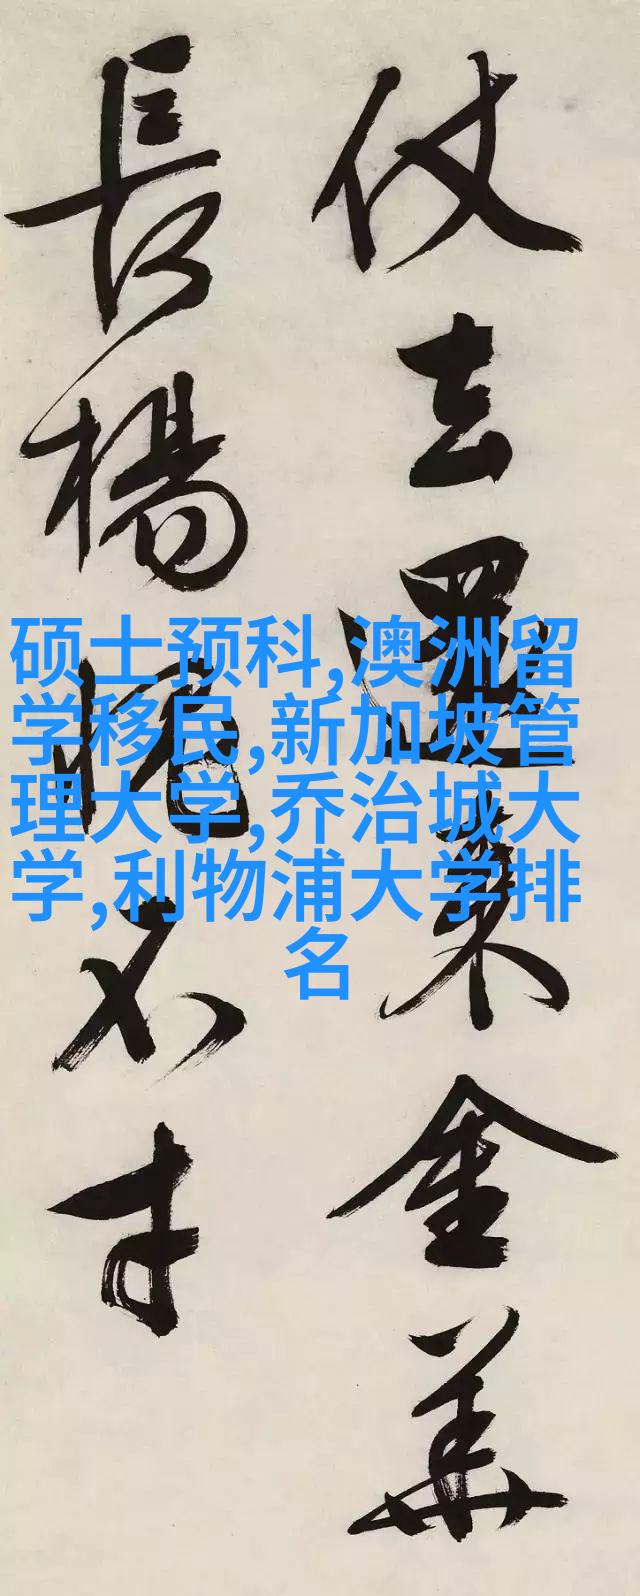 仗去還來金華
長楊愧不才
硕士预科,澳洲留
学移民,新加坡管
理大学,乔治城大
学,利物浦大学排
名